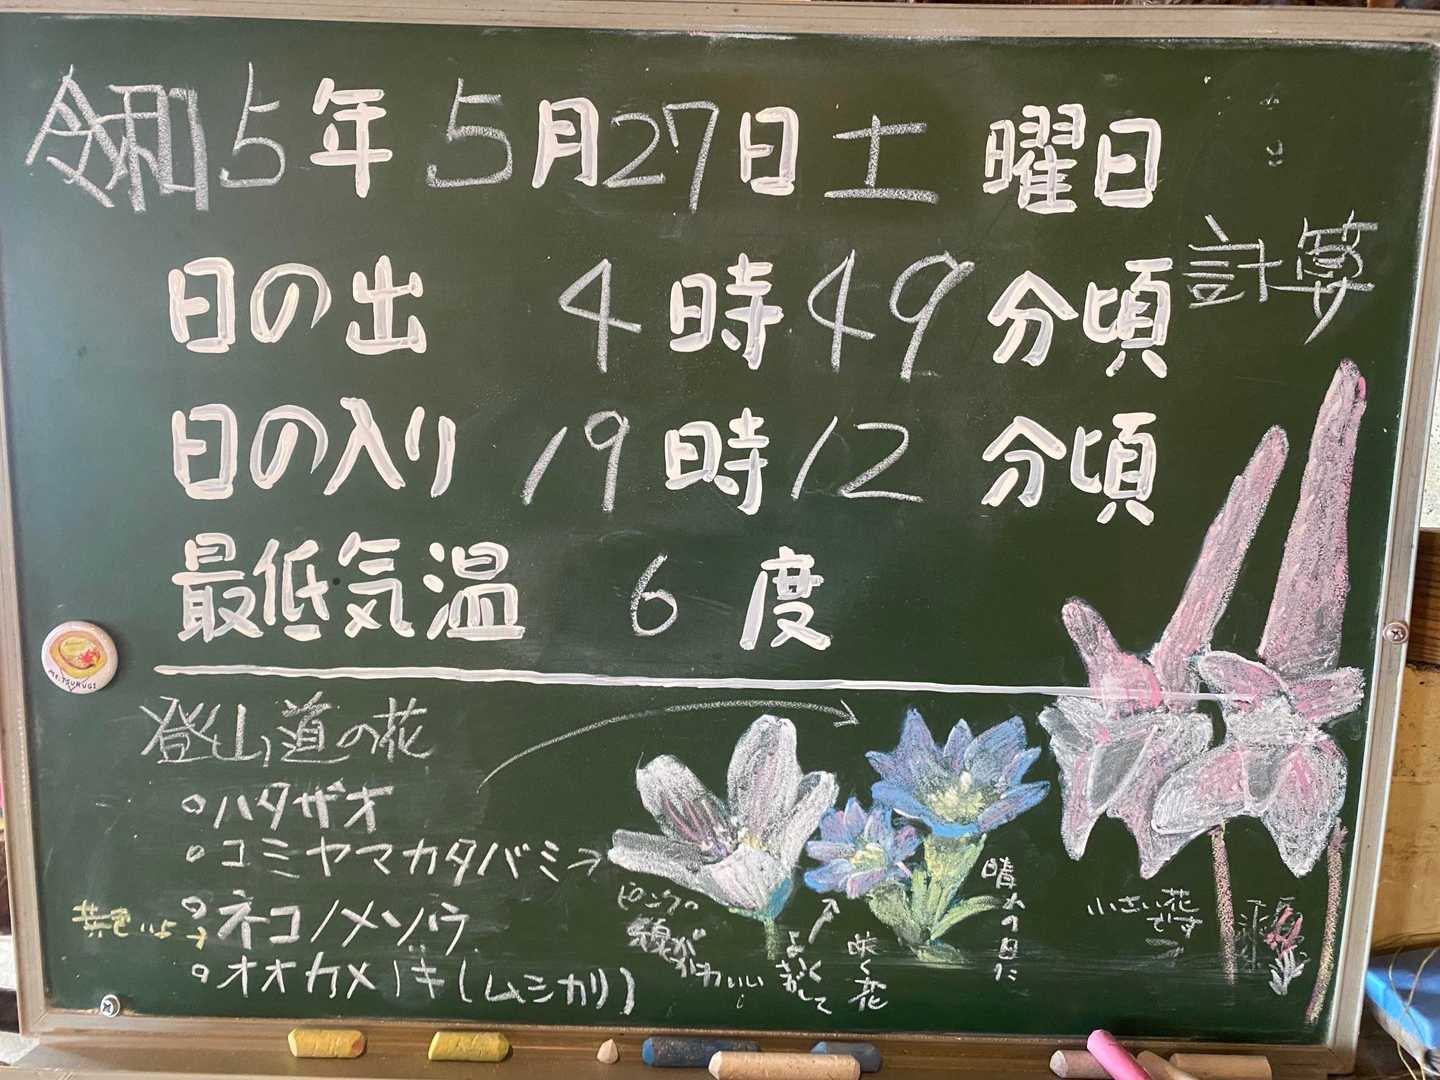 令和5年5月27日土曜日
日の出 4時49分頃
計算
日の入り 19時12分頃
最低気温 6度
Mt.TSURUGI
登山道の花
ハタザオ
コミヤマカタバミ→
ネコノメソウ
オオカメノキ(ムシカリ)
ピンクの
線が
かわいい
晴れの日に
咲く花
小さい花
です